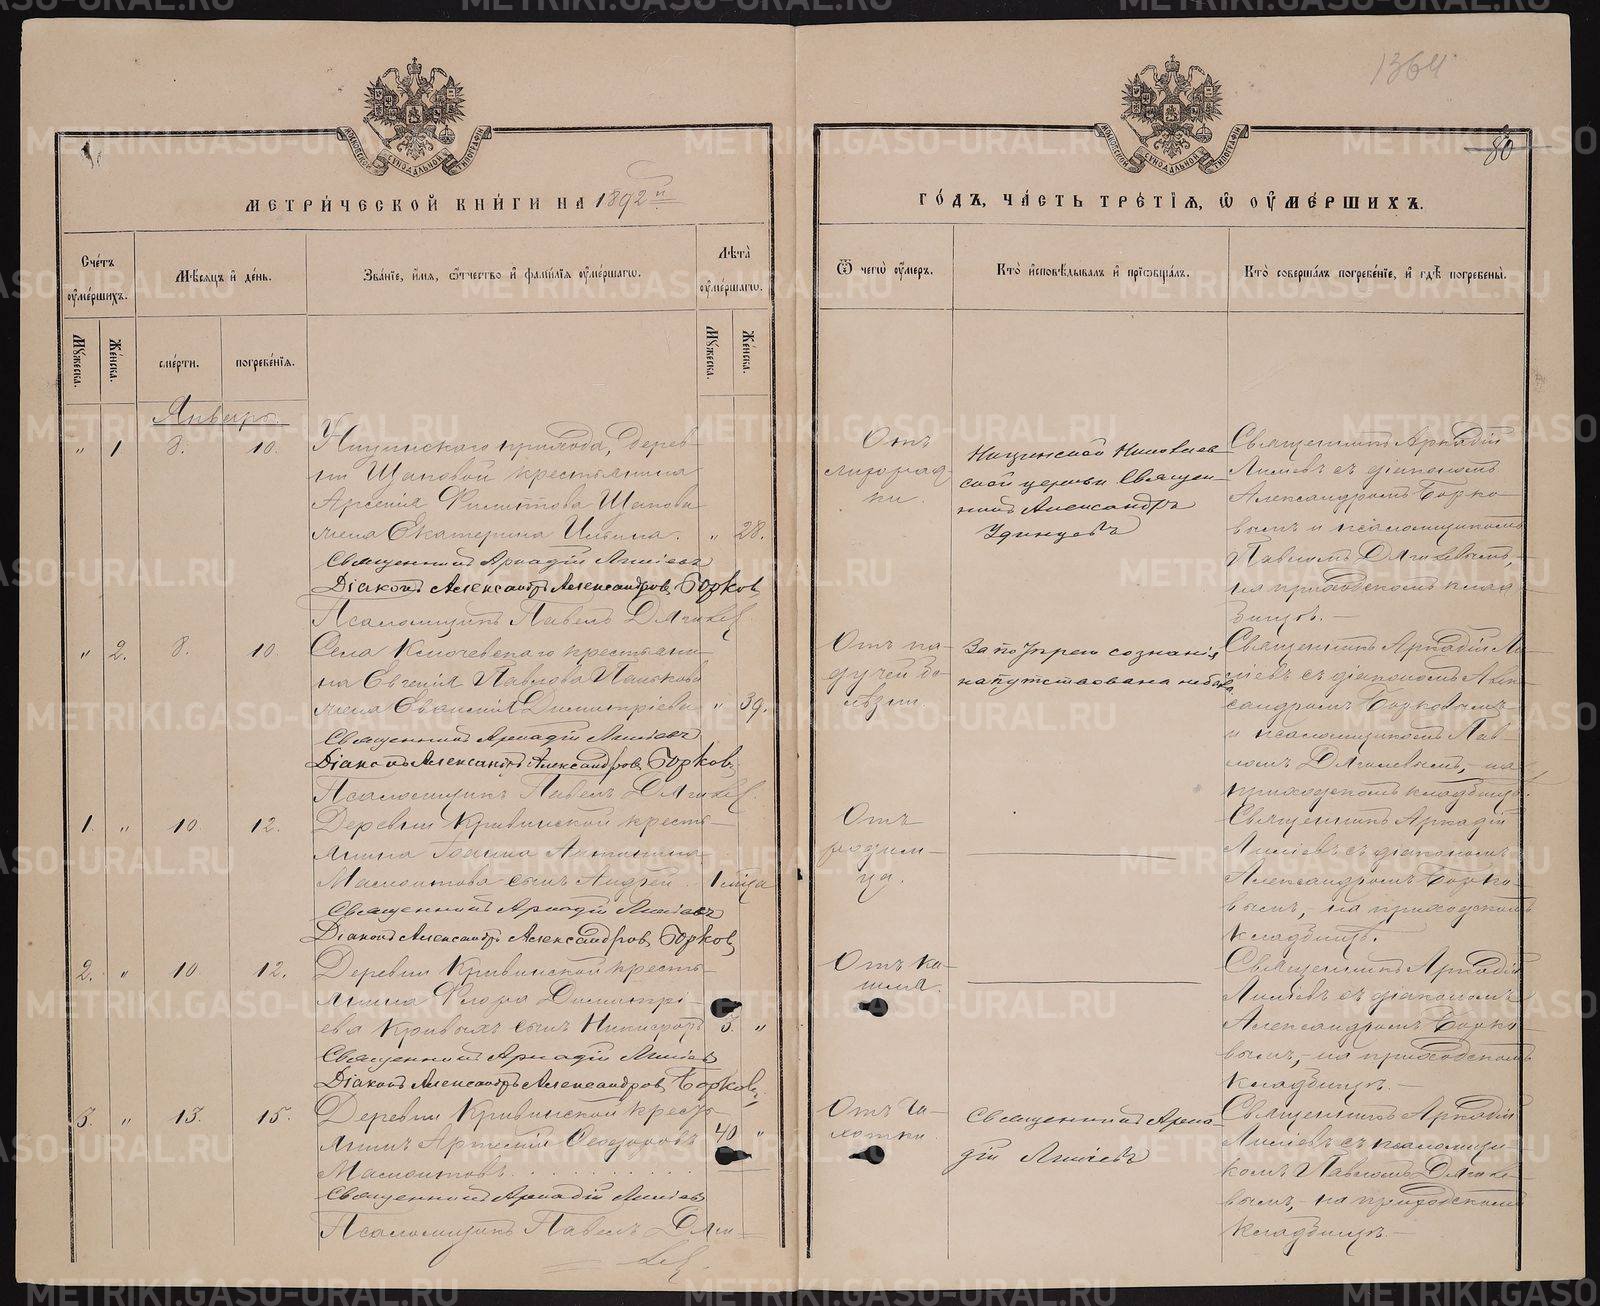 1364
80
МЕТРИЧЕСКОЙ КНИГИ НА 1892й
ГОДЪ, ЧАСТЬ ТРЕТІЯ, Ѿ ОУМЕРШИХЪ.
Счетъ оумершихъ.
Мѣсяцъ и день.
Званіе, имя, ѿтчество и фамилія оумершагѡ.
Лѣта оумершагѡ.
Мужеска.
Женска.
смерти.
погребенія.
Мужеска.
Женска.
Ѿ чегѡ оумеръ.
Кто исповѣдывалъ и пріѡбщалъ.
Кто совершалъ погребеніе, и гдѣ погребены.
Январь.
" 1 8. 10.
Ницинскаго прихода, дерев-
ни Щаповой крестьянина
Арсенія Филиппова Щапова
жена Екатерина Ильина. " 28.
Священникъ Аркадій
Діаконъ Александръ Александровъ Борковъ
Псаломщикъ Павелъ
Отъ
лихорад-
ки.
Ницинской Николаев
ской церкви Священ-
никъ Александръ
Удинцевъ
Священникъ Аркадій
съ діакономъ
Александромъ Борко-
вымъ и псаломщикомъ
Павломъ
на приходскомъ клад-
бищѣ.
" 2. 8. 10.
Села Ключевскаго крестьяни-
на Евгенія Павлова Панькова
жена Евфимія Димитріева " 39.
Священникъ Аркадій
Діаконъ Александръ Александровъ Борковъ
Псаломщикъ Павелъ
Отъ па-
дучей бо-
лѣзни.
За потерею сознанія
напутствована не была
Священникъ Аркадій
съ діакономъ Алек-
сандромъ Борковымъ
и псаломщикомъ Пав-
ломъ на
приходскомъ кладбищѣ.
1. " 10 12.
Деревни Кривинской кресть-
янина Іоанна Антонина
сынъ Андрей. 1 мѣца
Священникъ Аркадій
Діаконъ Александръ Александровъ Борковъ
Отъ
родим-
ца.
Священникъ Аркадій
съ діакономъ
Александромъ Борко-
вымъ, на приходскомъ
кладбищѣ.
2. " 10 12.
Деревни Кривинской кресть-
янина Флора Димитрі-
ева Кривыхъ сынъ Никифоръ 3. "
Священникъ Аркадій
Діаконъ Александръ Александровъ Борковъ
Отъ ка-
шля.
Священникъ Аркадій
съ діакономъ
Александромъ Борко-
вымъ, на приходскомъ
кладбищѣ.
3. " 13. 15.
Деревни Кривинской кресть-
янинъ Артемій Ѳеодоровъ 40 "
Священникъ Аркадій
Псаломщикъ Павелъ
Отъ ча-
хотки.
Священникъ Арка-
дій
Священникъ Аркадій
съ псаломщи-
комъ Павломъ
на приходскомъ
кладбищѣ.
METRIKI.GASO-URAL.RU